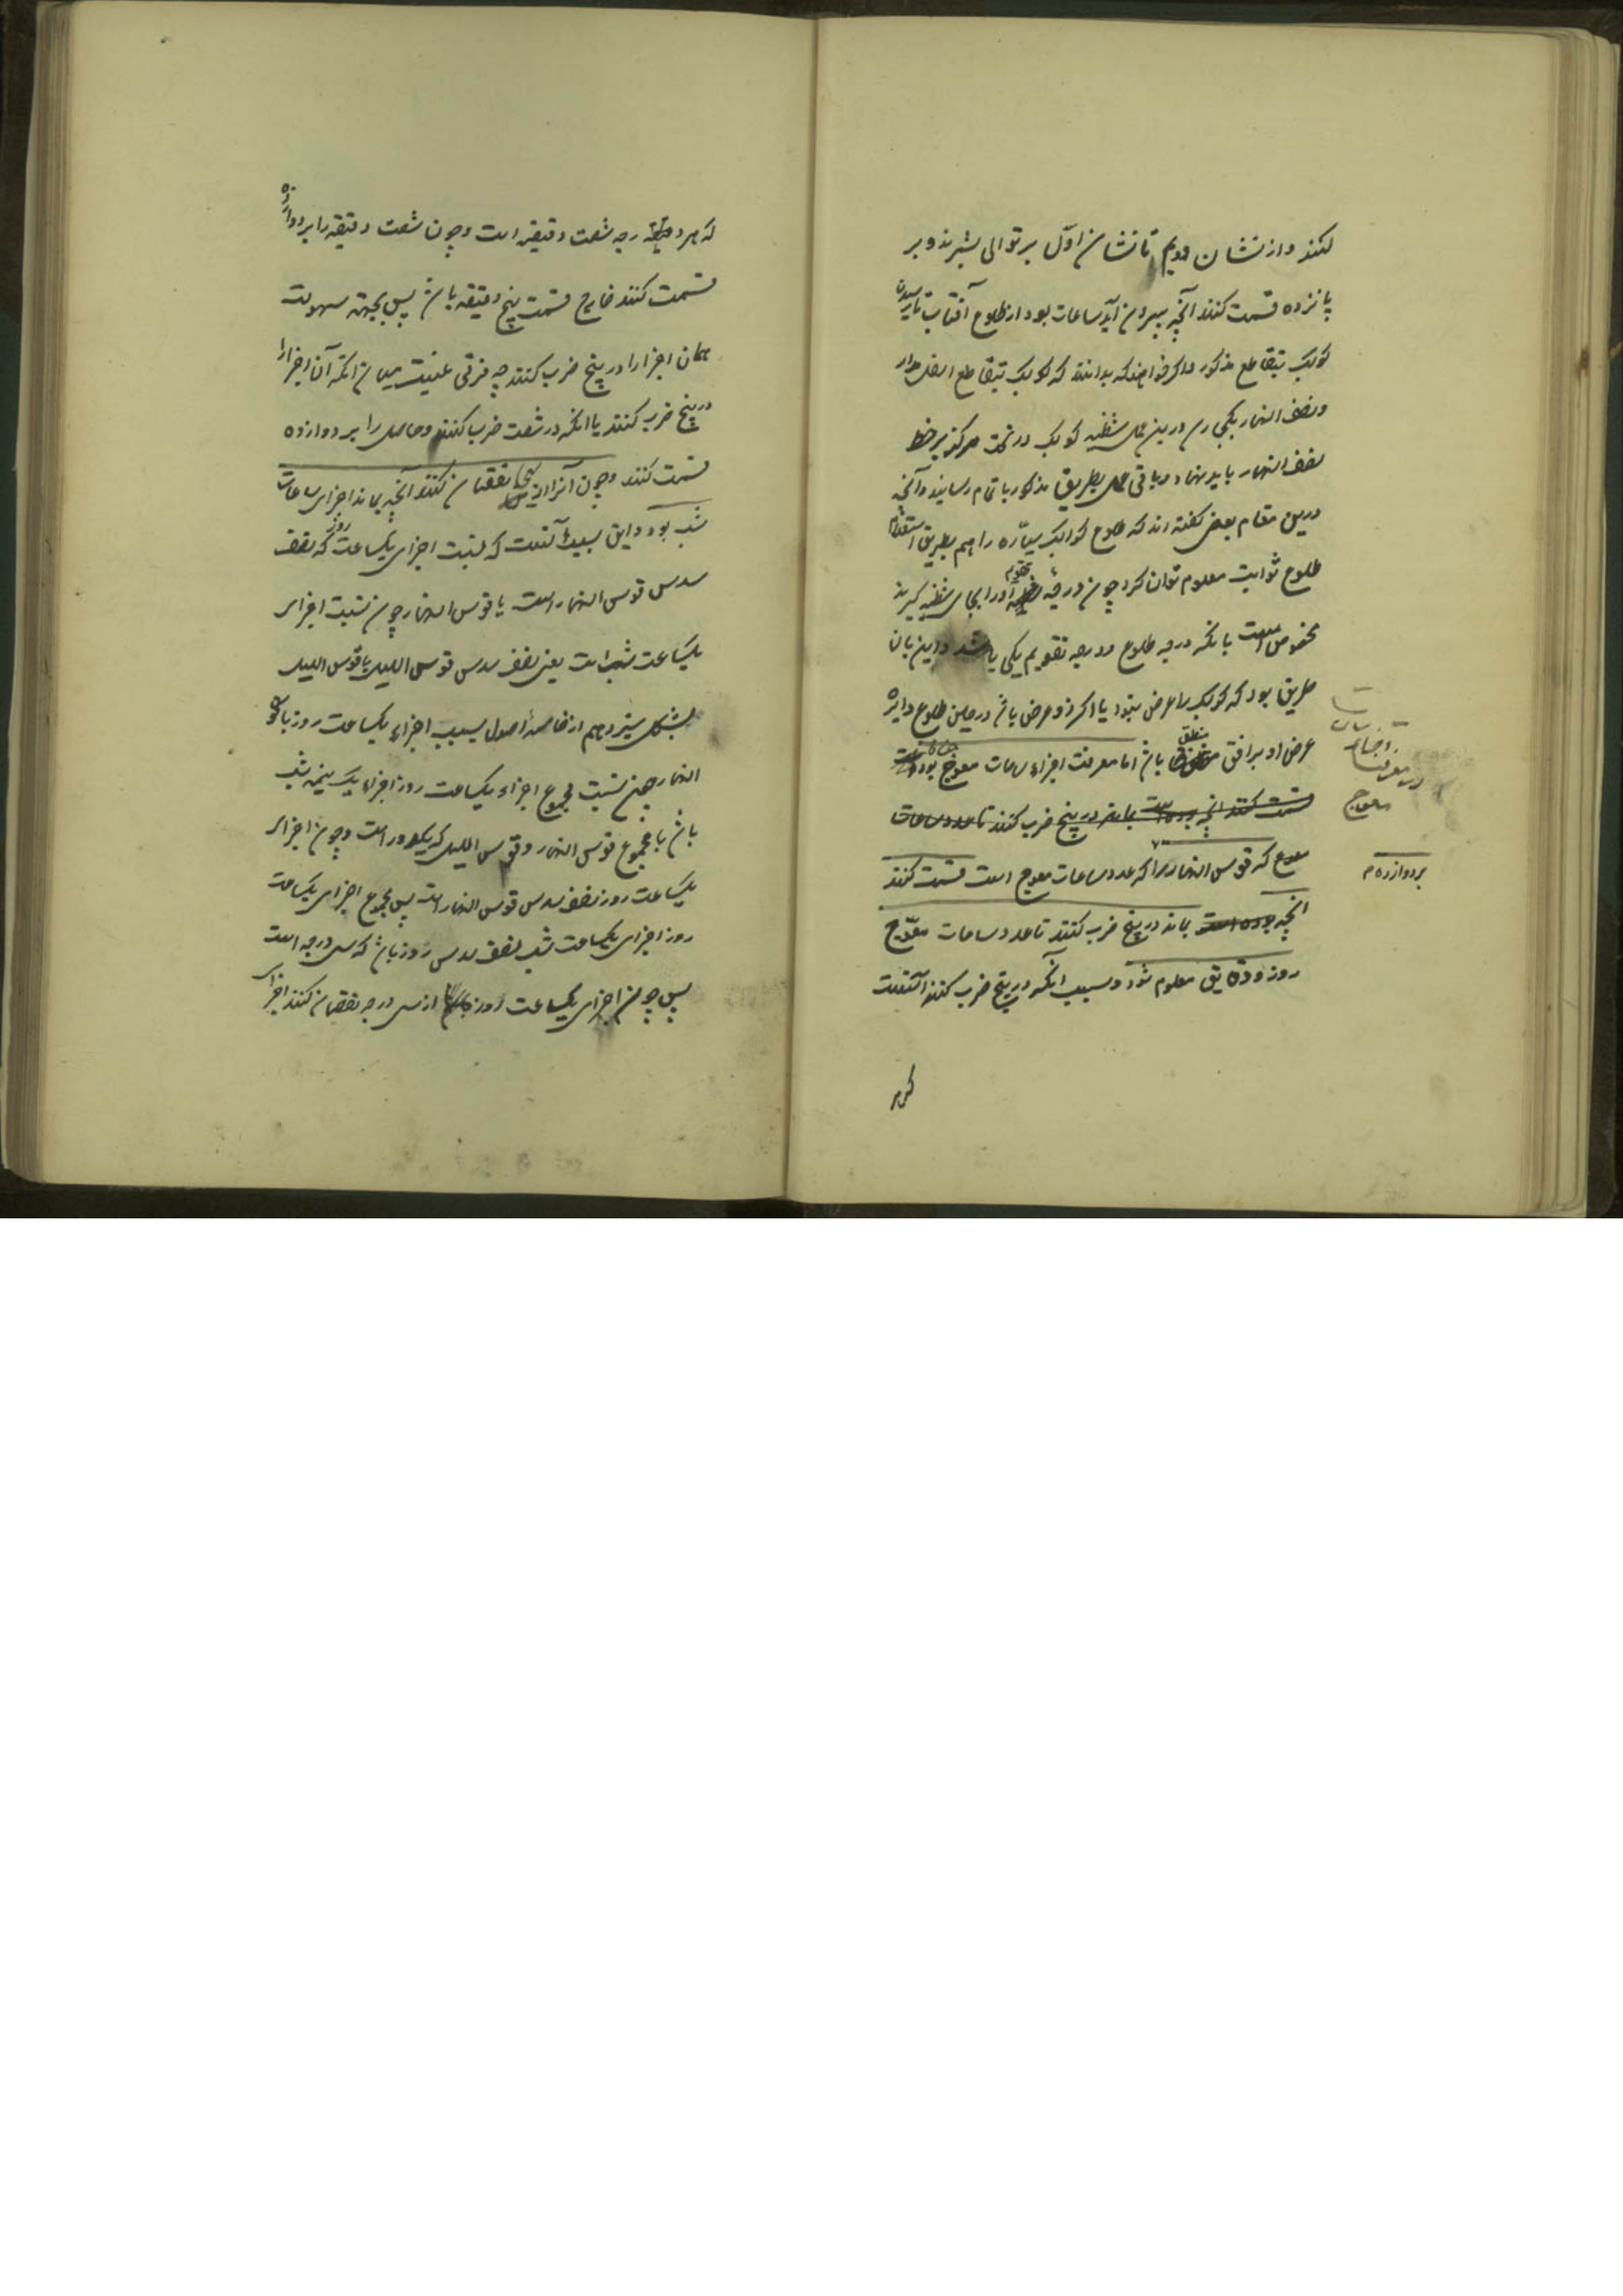 کنند و از نشان دویم تا نشان اوّل بر توالی بشمرند و بر
پانزده قسمت کنند آنچه بیرون آید ساعات بود از طلوع آفتاب تا رسیدن
کوکب بتقاطع مذکور و اگر خواهند که بدانند که کوکب بتقاطع اسفل مدار
و نصف النهار یکجی رسد درین عمل شظیه کوکب در تحت مرکز بر خط
نصف النهار باید نهاد و باقی عمل بطریق مذکور باتمام رسانیدن و آنچه
درین مقام بعضی گفته اند که طلوع کواکب سیّاره را هم بطریق استعلام
طلوع ثوابت معلوم توان کرد چون درجهٔ تقویم او را بجای شظیه گیرند
مخصوص است بانکه درجه طلوع و درجه تقویم یکی باشد و این بان
طریق بود که کوکب را عرض نبود یا اگر ذو عرض باشد در حین طلوع دایره
عرض او بر افق منطبق باشد اما معرفت اجزاء ساعات معوّج بود
قسمت کنند انچه بوده است بماند در پنج ضرب کنند تا عدد ساعات
معوج که قوس النهار را که عدد ساعات معوج است قسمت کنند
انچه بوده است بماند در پنج ضرب کنند تا عدد ساعات معوّج
روز و دقایق معلوم شود و سبب انکه در پنج ضرب کنند آنست
در معرفت
ساعات
معوج
بر دوازده م
که هر
که هر درجه شصت دقیقه است و چون شصت دقیقه را بر دوازده
قسمت کنند خارج قسمت پنج دقیقه باشد پس بجهة سهولت
همان اجزا را در پنج ضرب کنند چه فرقی نیست میان انکه آن اجزا را
در پنج ضرب کنند یا انکه در شصت ضرب کنند و حاصل را بر دوازده
قسمت کنند و چون آنرا از سی نقصان کنند آنچه بماند اجزای ساعات
شب بود و این بسبب آنست که نسبت اجزای یکساعت روز که نصف
سدس قوس النهار است با قوس النهار چون نسبت اجزای
یکساعت شب است یعنی نصف سدس قوس اللیل با قوس اللیل
بشکل سیزدهم از خامسهٔ اصول بسبب اجزاء یکساعت روز با قوس
النهار چون نسبت مجموع اجزاء یکساعت روز و اجزاء یک نیمه شب
باشد با مجموع قوس النهار و قوس اللیل که یکدور است و چون اجزای
یکساعت روز نصف سدس قوس النهار است پس مجموع اجزای یکساعت
روز و اجزای یکساعت شب نصف سدس دور باشد که سی درجه است
پس چون اجزای یکساعت روز از سی درجه نقصان کنند اجزای